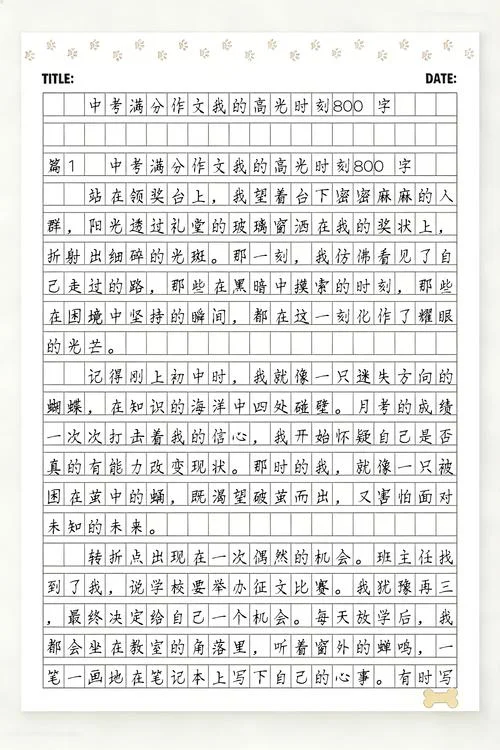 TITLE: DATE:
中考满分作文我的高光时刻800 字
篇1 中考满分作文我的高光时刻800 字
站在领奖台上，我望着台下密密麻麻的人
群，阳光透过礼堂的玻璃窗洒在我的奖状上，
折射出细碎的光斑。那一刻，我仿佛看见了自
己走过的路，那些在黑暗中摸索的时刻，那些
在困境中坚持的瞬间，都在这一刻化作了耀眼
的光芒。
记得刚上初中时，我就像一只迷失方向的
蝴蝶，在知识的海洋中四处碰壁。月考的成绩
一次次打击着我的信心，我开始怀疑自己是否
真的有能力改变现状。那时的我，就像一只被
困在茧中的蛹，既渴望破茧而出，又害怕面对
未知的未来。
转折点出现在一次偶然的机会。班主任找
到了我，说学校要举办征文比赛。我犹豫再三
，最终决定给自己一个机会。每天放学后，我
都会坐在教室的角落里，听着窗外的蝉鸣，一
笔一画地在笔记本上写下自己的心事。有时写